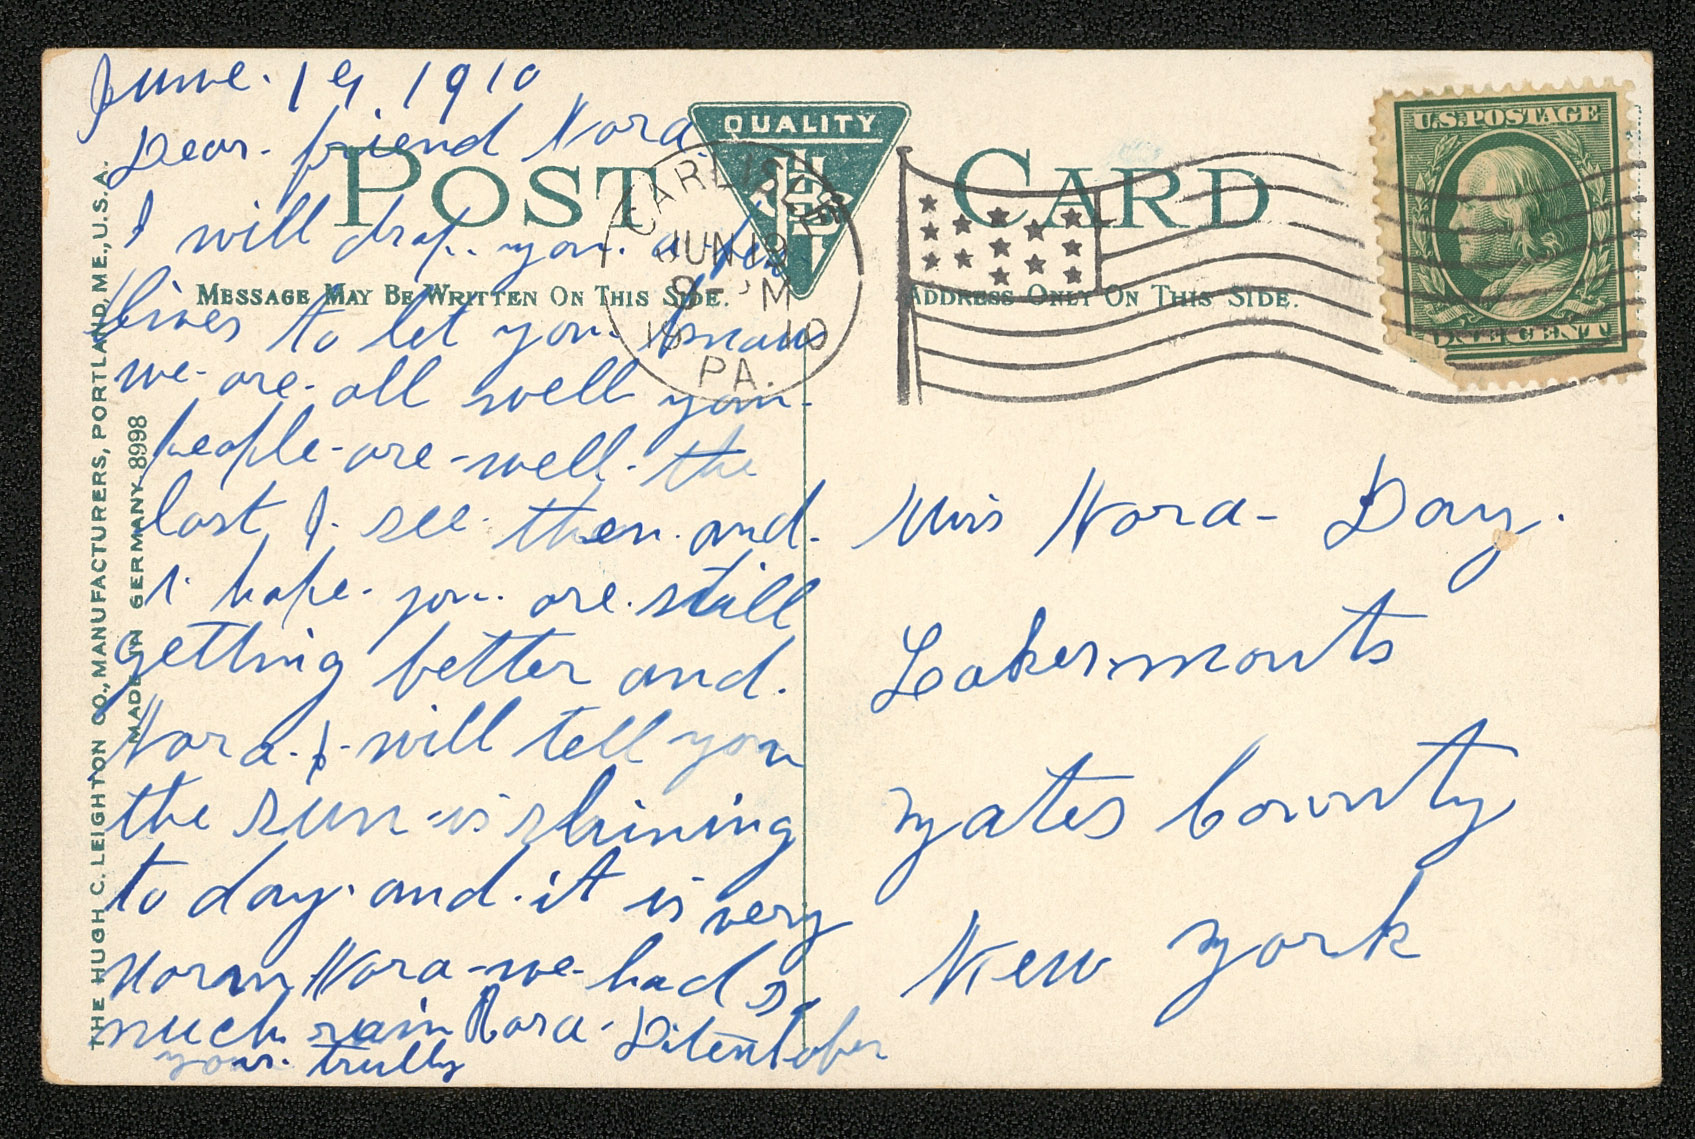 June. 19. 1910
Dear. friend Nora.
I will drop. you. a few
lines to let you. know
we. are. all well your.
people-are-well. the
last I. see. them. and.
i hope. you. are. still
getting better and.
Nora. I. will tell you
the sun-is shining
to day. and. it is very
warm Nora-we-had so
much rain Rosa. Ditenlafer
your. trully
POST CARD
QUALITY
MESSAGE MAY BE WRITTEN ON THIS SIDE.
ADDRESS ONLY ON THIS SIDE.
CARLISLE
JUN 19
8- PM
1910
PA.
U.S. POSTAGE
ONE CENT
Miss Nora- Day.
Lakemonts
yates County
New york
THE HUGH C. LEIGHTON CO., MANUFACTURERS, PORTLAND, ME., U.S.A.
MADE IN GERMANY 8998